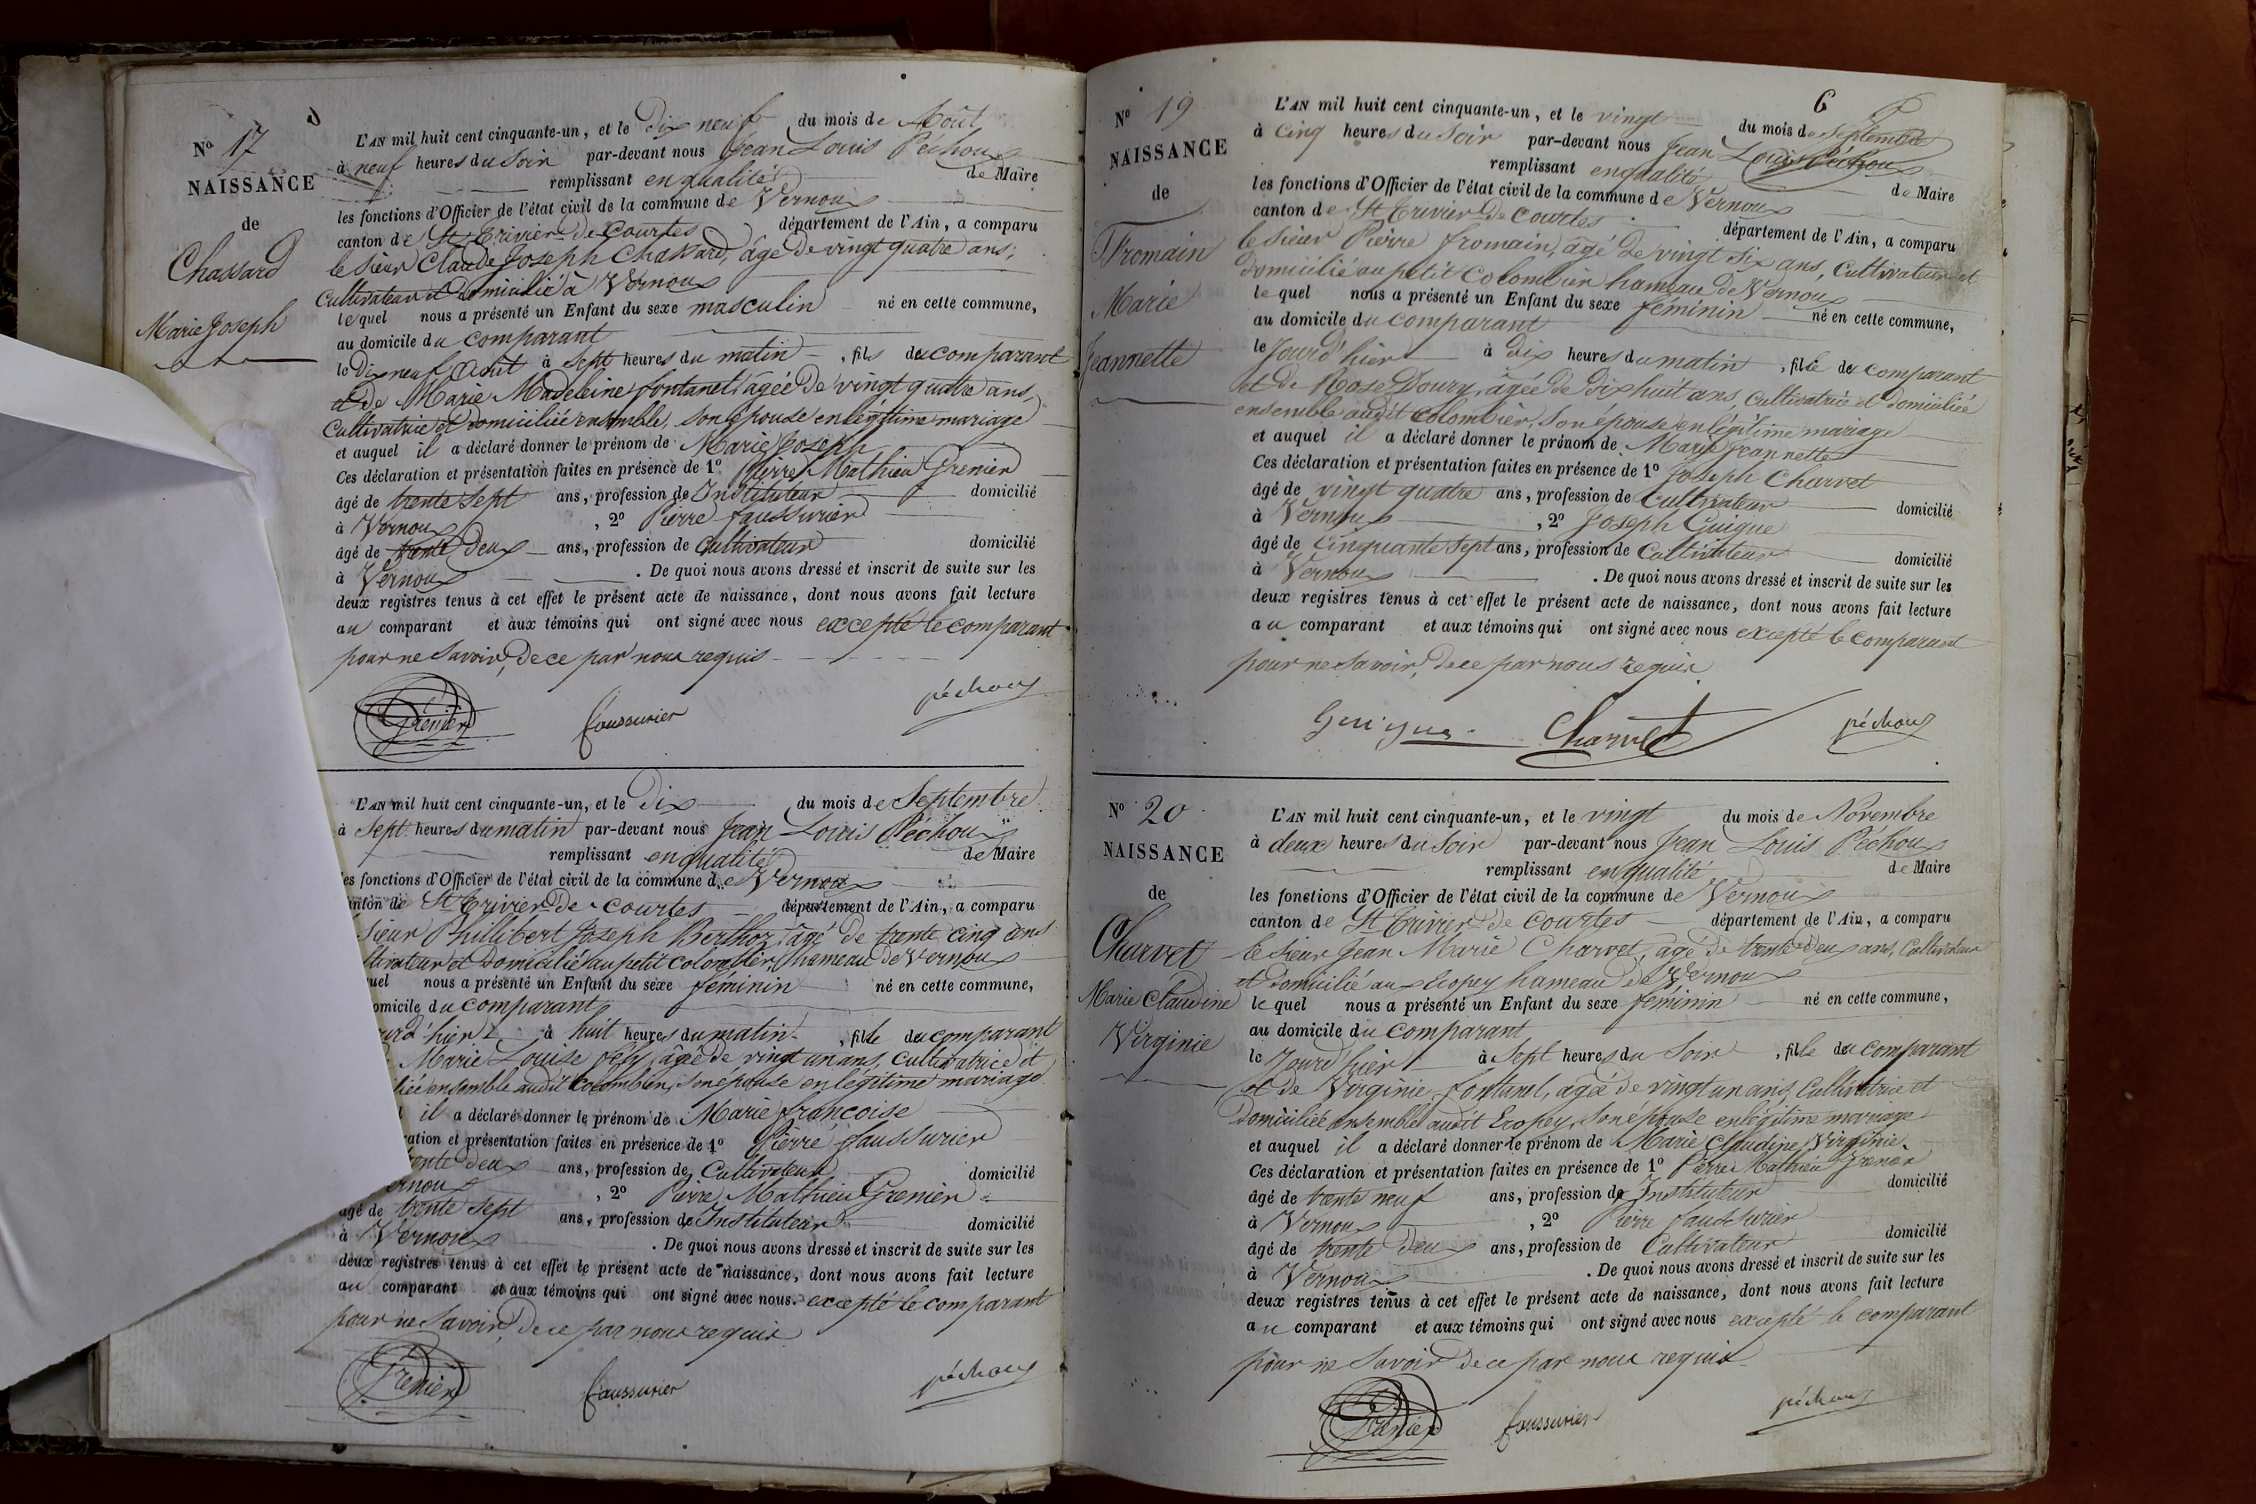 L'AN mil huit cent cinquante-un, et le Dix neuf du mois de Août
Nº 17
à neuf heures du Soir par-devant nous Jean Louis Péchoux
NAISSANCE
remplissant en qualité de Maire
de
les fonctions d'Officier de l'état civil de la commune de Vernoux
canton de St Trivier De Courtes département de l'Ain, a comparu
Chassard
le Sieur Claude Joseph Chassard, âgé De vingt quatre ans,
Cultivateur et domicilié à Vernoux
Marie Joseph
lequel nous a présenté un Enfant du sexe masculin né en cette commune,
au domicile du comparant
le Dix neuf Août à sept heures du matin, fils du comparant
et de Marie Madeleine fontanel, âgée De vingt quatre ans,
Cultivatrice et Domiciliée ensemble, son épouse en légitime mariage
et auquel il a déclaré donner le prénom de Marie Joseph
Ces déclaration et présentation faites en présence de 1º Pierre Mathieu Grenier
âgé de trente Sept ans, profession de Instituteur domicilié
à Vernoux, 2º Pierre faussurier
âgé de trente Deux ans, profession de Cultivateur domicilié
à Vernoux. De quoi nous avons dressé et inscrit de suite sur les
deux registres tenus à cet effet le présent acte de naissance, dont nous avons fait lecture
au comparant et aux témoins qui ont signé avec nous excepté le comparant
pour ne Savoir, De ce par nous requis
Grenier faussurier péchoux
L'AN mil huit cent cinquante-un, et le Dix du mois de Septembre
à Sept heures du matin par-devant nous Jean Louis Péchoux
remplissant en qualité de Maire
les fonctions d'Officier de l'état civil de la commune de Vernoux
canton de St Trivier De Courtes département de l'Ain, a comparu
Sieur Phillibert Joseph Berthoz, âgé de trente cinq ans
et Domicilié au petit Colombier, hameau De Vernoux
nous a présenté un Enfant du sexe féminin né en cette commune,
domicile du comparant
à huit heures du matin, fille du comparant
Marie Louise fély, âgée de vingt un ans, Cultivatrice et
ensemble audit Colombier, Son épouse en légitime mariage
il a déclaré donner le prénom de Marie françoise
et présentation faites en présence de 1º Pierre faussurier
trente deux ans, profession de Cultivateur domicilié
Vernoux, 2º Pierre Mathieu Grenier
âgé de trente Sept ans, profession de Instituteur domicilié
à Vernoux. De quoi nous avons dressé et inscrit de suite sur les
deux registres tenus à cet effet le présent acte de naissance, dont nous avons fait lecture
au comparant et aux témoins qui ont signé avec nous excepté le comparant
pour ne Savoir, De ce par nous requis
Grenier faussurier péchoux
6
Nº 19
L'AN mil huit cent cinquante-un, et le vingt du mois de Septembre
à Cinq heures du Soir par-devant nous Jean Louis Péchoux
NAISSANCE
remplissant en qualité de Maire
de
les fonctions d'Officier de l'état civil de la commune de Vernoux
canton de St Trivier De Courtes département de l'Ain, a comparu
Fromain
le Sieur Pierre fromain, âgé De vingt Six ans, Cultivateur et
domicilié au petit Colombier hameau de Vernoux
Marie
lequel nous a présenté un Enfant du sexe féminin né en cette commune,
au domicile du comparant
Jeannette
le Jourd'hier à Dix heures du matin, fille du comparant
et De Rose Doury, âgée De Dix huit ans, Cultivatrice et Domiciliée
ensemble audit Colombier, Son épouse en légitime mariage
et auquel il a déclaré donner le prénom de Marie Jeannette
Ces déclaration et présentation faites en présence de 1º Joseph Charvet
âgé de vingt quatre ans, profession de Cultivateur domicilié
à Vernoux, 2º Joseph Guigue
âgé de Cinquante Sept ans, profession de Cultivateur domicilié
à Vernoux. De quoi nous avons dressé et inscrit de suite sur les
deux registres tenus à cet effet le présent acte de naissance, dont nous avons fait lecture
au comparant et aux témoins qui ont signé avec nous excepté le comparant
pour ne Savoir, De ce par nous requis
Guigue Charvet péchoux
Nº 20
L'AN mil huit cent cinquante-un, et le vingt du mois de Novembre
à deux heures du Soir par-devant nous Jean Louis Péchoux
NAISSANCE
remplissant en qualité de Maire
de
les fonctions d'Officier de l'état civil de la commune de Vernoux
canton de St Trivier De Courtes département de l'Ain, a comparu
Charvet
le Sieur Jean Marie Charvet, âgé De trente deux ans, Cultivateur
et Domicilié aux Hameau de Vernoux
Marie Claudine
lequel nous a présenté un Enfant du sexe féminin né en cette commune,
Virginie
au domicile du comparant
le Jourd'hier à Sept heures du Soir, fille du comparant
et de Virginie fontanel, âgée de vingt un ans, Cultivatrice et
Domiciliée ensemble audit Son épouse en légitime mariage
et auquel il a déclaré donner le prénom de Marie Claudine Virginie
Ces déclaration et présentation faites en présence de 1º Pierre Mathieu Grenier
âgé de trente neuf ans, profession de Instituteur domicilié
à Vernoux, 2º Pierre faussurier
âgé de trente Deux ans, profession de Cultivateur domicilié
à Vernoux. De quoi nous avons dressé et inscrit de suite sur les
deux registres tenus à cet effet le présent acte de naissance, dont nous avons fait lecture
au comparant et aux témoins qui ont signé avec nous excepté le comparant
pour ne Savoir De ce par nous requis
Grenier faussurier péchoux